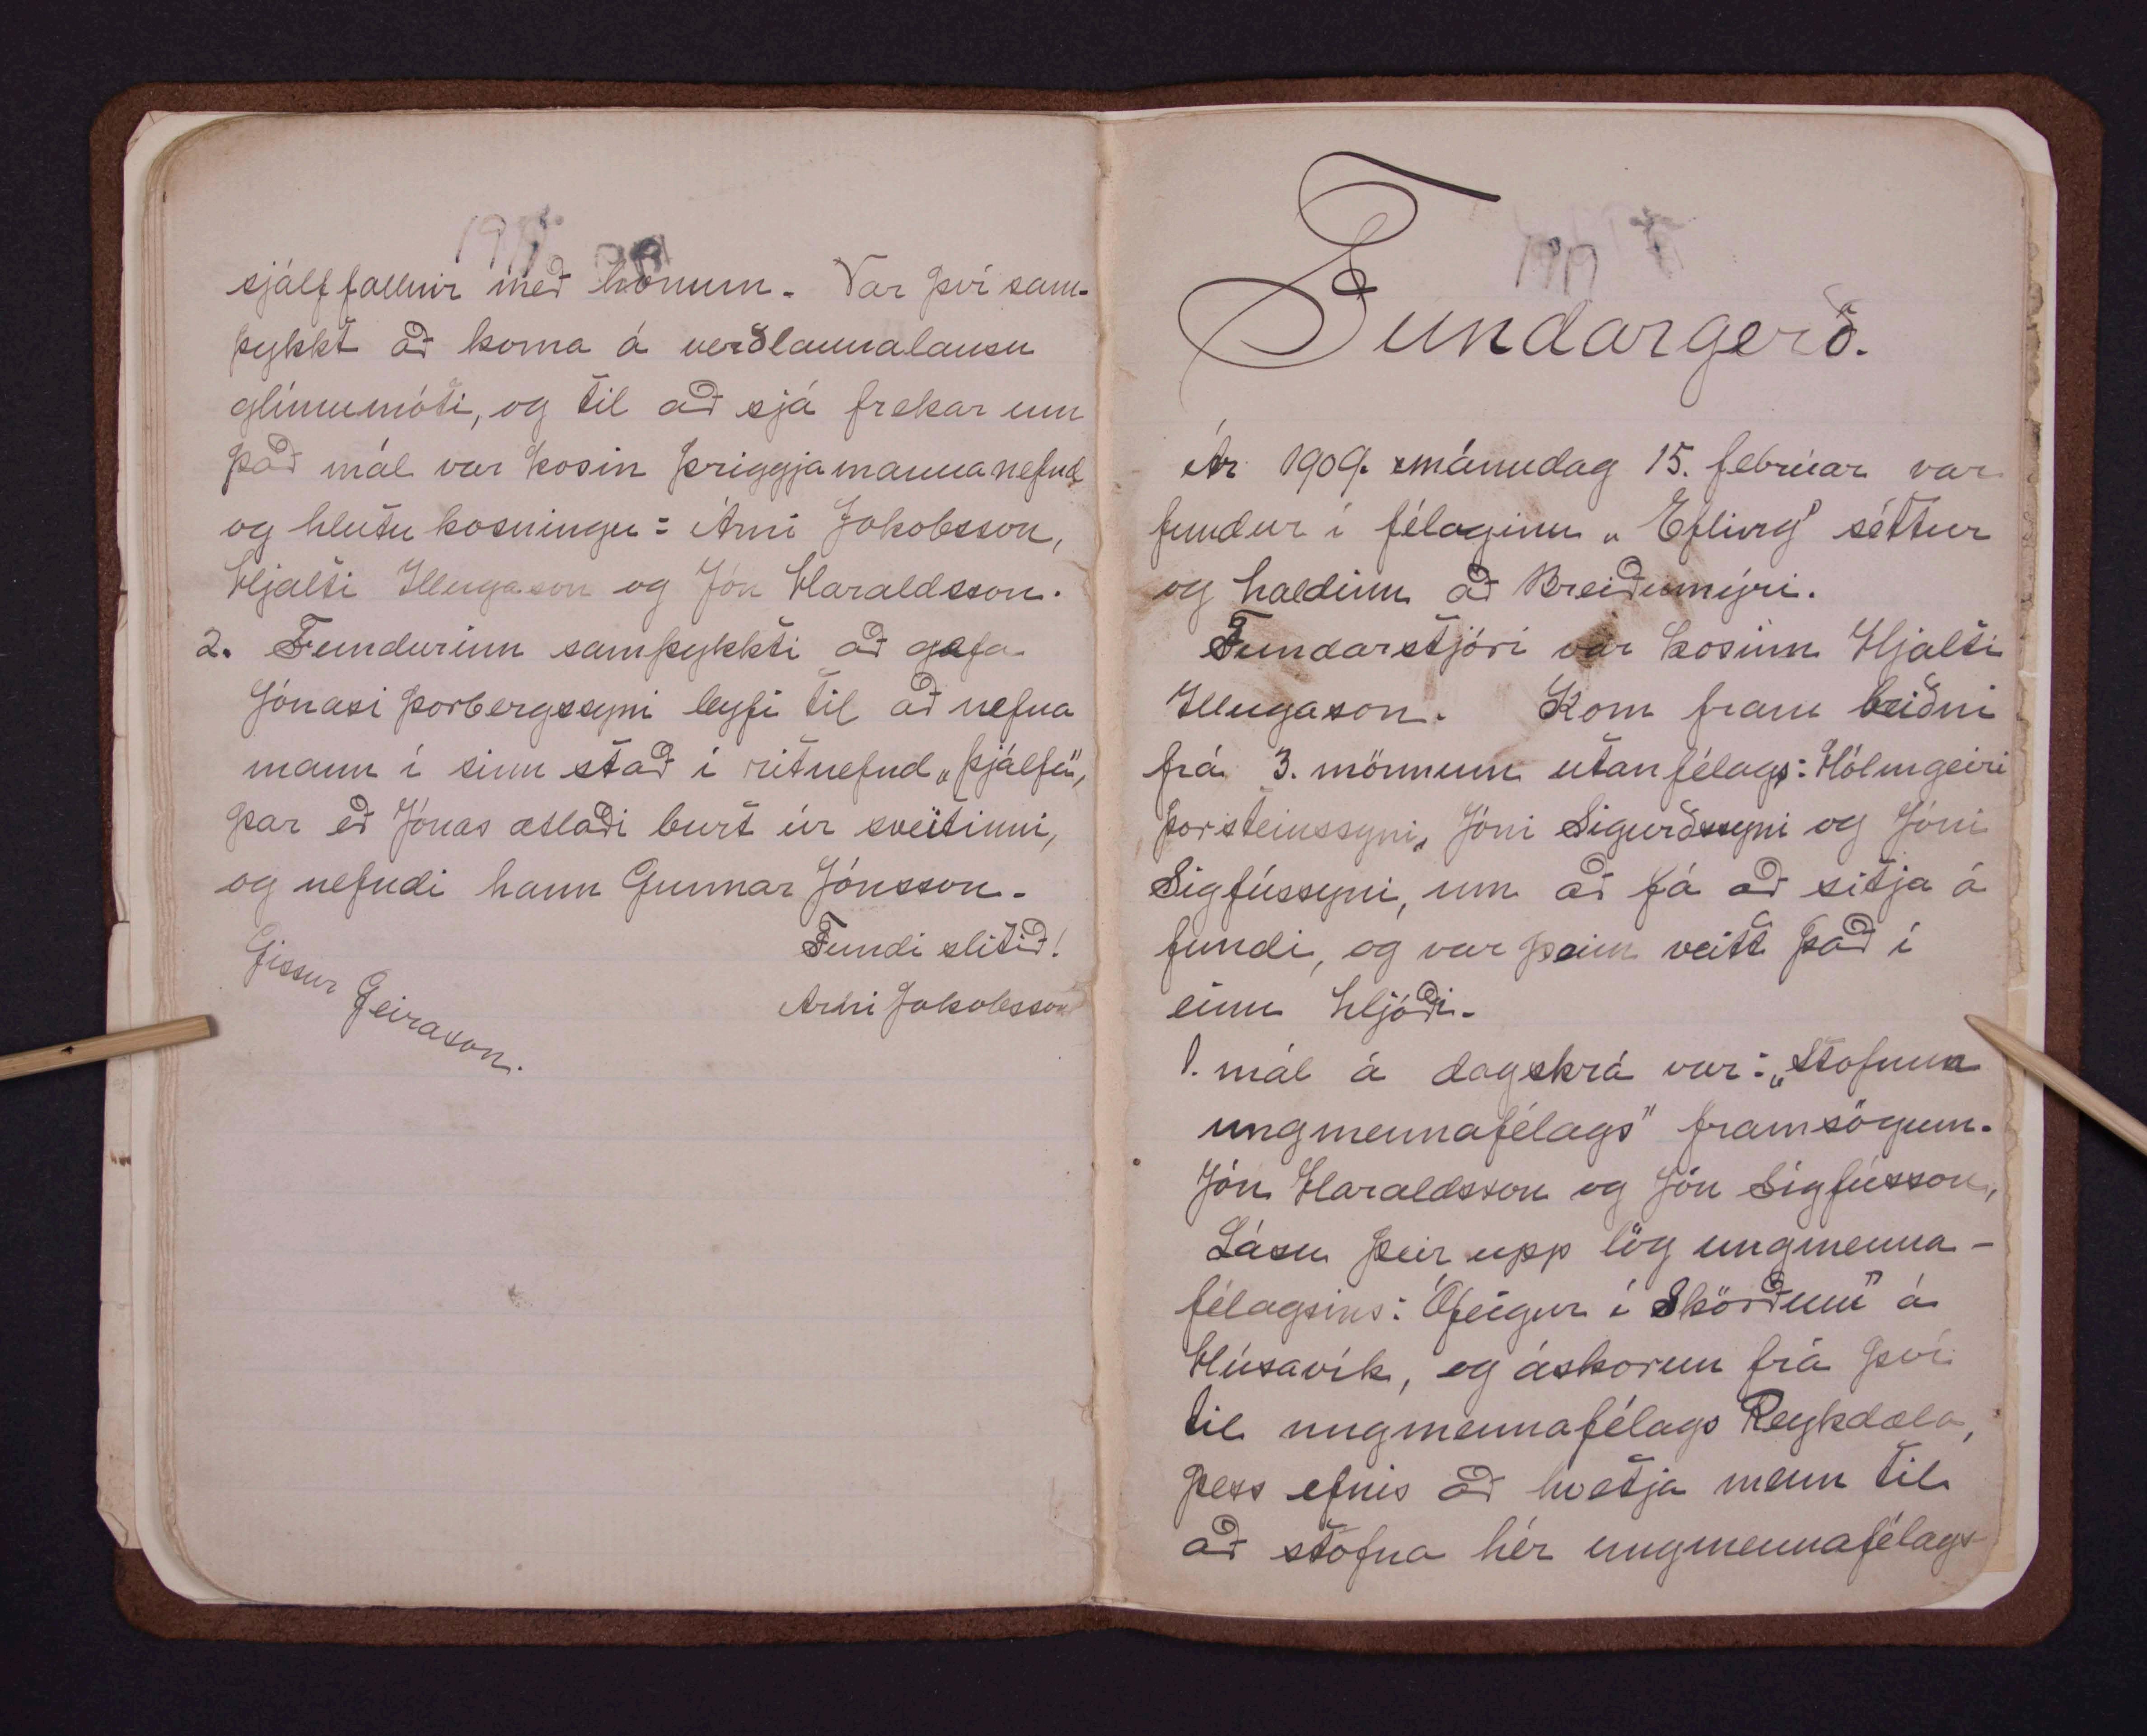 sjálffallnir með honum. Var því sam-
þykkt að koma á verðlaunalausu
glímumóti, og til að sjá frekar um
það mál var kosin þriggjamannanefnd
og hlutu kosningu: Árni Jakobsson,
Hjalti Illugason og Jón Haraldsson.
2. Fundurinn samþykkti að gefa
Jónasi Þorbergssyni leyfi til að nefna
mann í sinn stað í ritnefnd „Þjálfa",
þar eð Jónas ætlaði burt úr sveitinni,
og nefndi hann Gunnar Jónsson.
Fundi slitið!
Gissur Geirason.
Árni Jakobsson
Fundargerð.
Ár 1909. mánudag 15. februar var
fundur í félaginu „Efling" séttur
og haldinn að Breiðumýri.
Fundarstjóri var kosinn Hjalti
Illugason. Kom fram beiðni
frá 3. mönnum utanfélags: Hólmgeiri
Þorsteinssyni, Jóni Sigurðssyni og Jóni
Sigfússyni, um að fá að sitja á
fundi, og var þeim veitt það í
einu hljóði.
1. mál á dagskrá var: „Stofnun
ungmennafélags" framsögum.
Jón Haraldsson og Jón Sigfússon,
Lásu þeir upp lög ungmenna-
félagsins: Ófeigur í Skörðum" á
Húsavík, og áskorun frá því
til ungmennafélags Reykdæla,
þess efnis að hvetja menn til
að stofna hér ungmennafélags